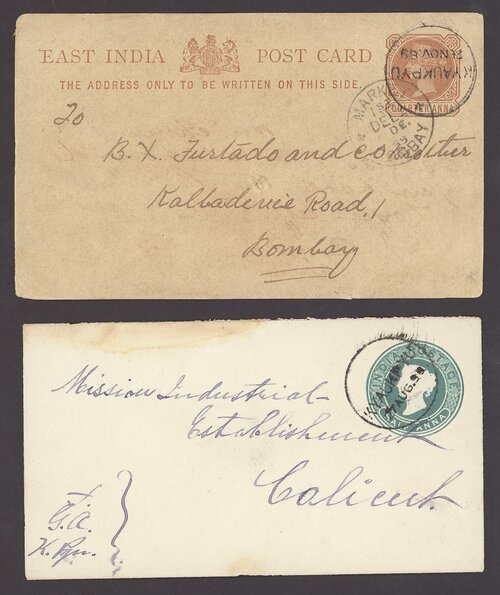 EAST INDIA POST CARD
THE ADDRESS ONLY TO BE WRITTEN ON THIS SIDE.
QUARTER ANNA
KYAUKPYU
NOV. 89
MARK
To
B. X. Furtado and co
Kalbadevie Road,
Bombay
INDIA POSTAGE
HALF ANNA
AUG. 98
Mission Industrial-
Establishment
Calicut.